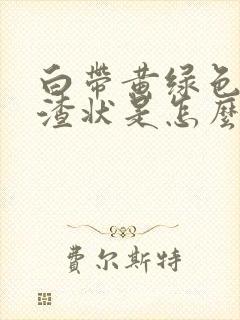 白带黄绿色
渣状是怎麼
费尔斯特